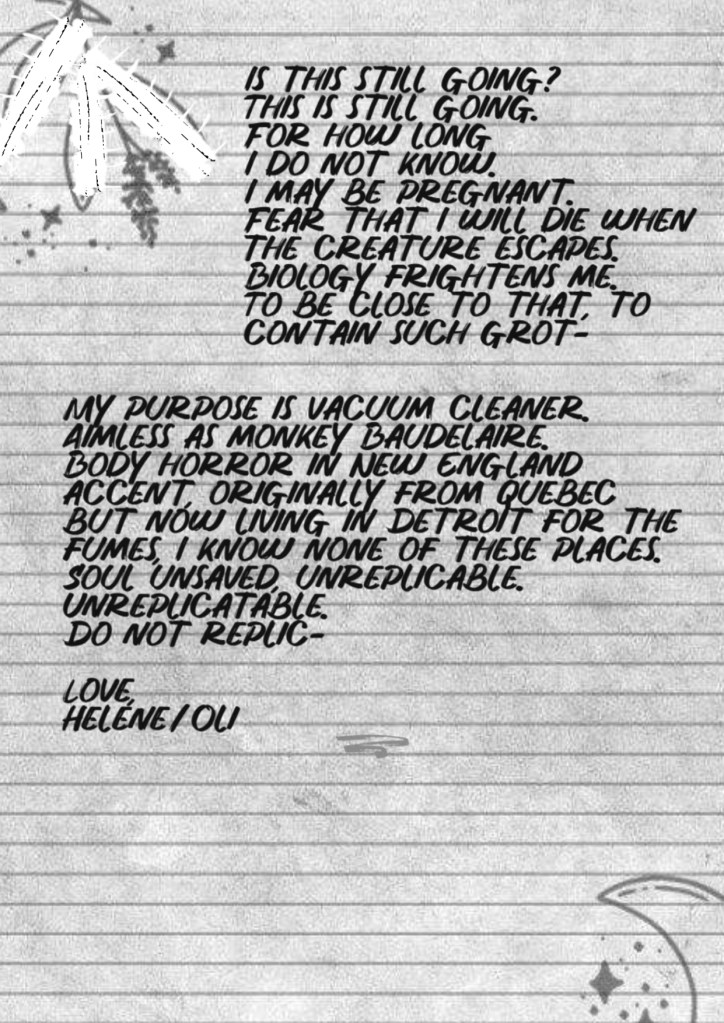 IS THIS STILL GOING?
THIS IS STILL GOING.
FOR HOW LONG
I DO NOT KNOW.
I MAY BE PREGNANT.
FEAR THAT I WILL DIE WHEN
THE CREATURE ESCAPES.
BIOLOGY FRIGHTENS ME.
TO BE CLOSE TO THAT, TO
CONTAIN SUCH GROT-
MY PURPOSE IS VACUUM CLEANER.
AIMLESS AS MONKEY BAUDELAIRE.
BODY HORROR IN NEW ENGLAND
ACCENT, ORIGINALLY FROM QUEBEC
BUT NOW LIVING IN DETROIT FOR THE
FUMES, I KNOW NONE OF THESE PLACES.
SOUL UNSAVED, UNREPLICABLE.
UNREPLICATABLE.
DO NOT REPLIC-
LOVE,
HELÉNE/OLI